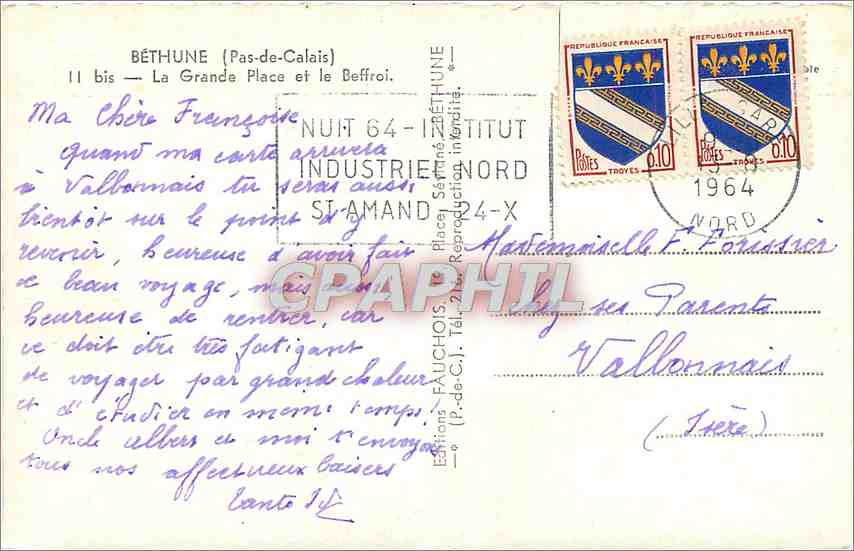 BÉTHUNE (Pas-de-Calais)
11 bis — La Grande Place et le Beffroi.
Ma Chère Françoise
Quand ma carte arrivera
à Valbonnais tu seras aussi
bientôt sur le point d'y
revenir, heureuse d'avoir fait
ce beau voyage, mais aussi
heureuse de rentrer, car
ce doit être très fatigant
de voyager par grand chaleur
et d'étudier en même temps!
Oncle Albert et moi t'envoyons
tous nos affectueux baisers
Tante
NUIT 64 - INSTITUT
INDUSTRIEL NORD
ST-AMAND - 24-X
Editions FAUCHOIS, Place, Séthuné BÉTHUNE
(P.-de-C.). Tél. 216. Reproduction interdite.
REPUBLIQUE FRANÇAISE
POSTES
0,10
TROYES
REPUBLIQUE FRANÇAISE
POSTES
0,10
TROYES
GARE
1964
NORD
Mademoiselle F. Forissier
chez ses Parents
Valbonnais
(Isère)
CPAPHIL